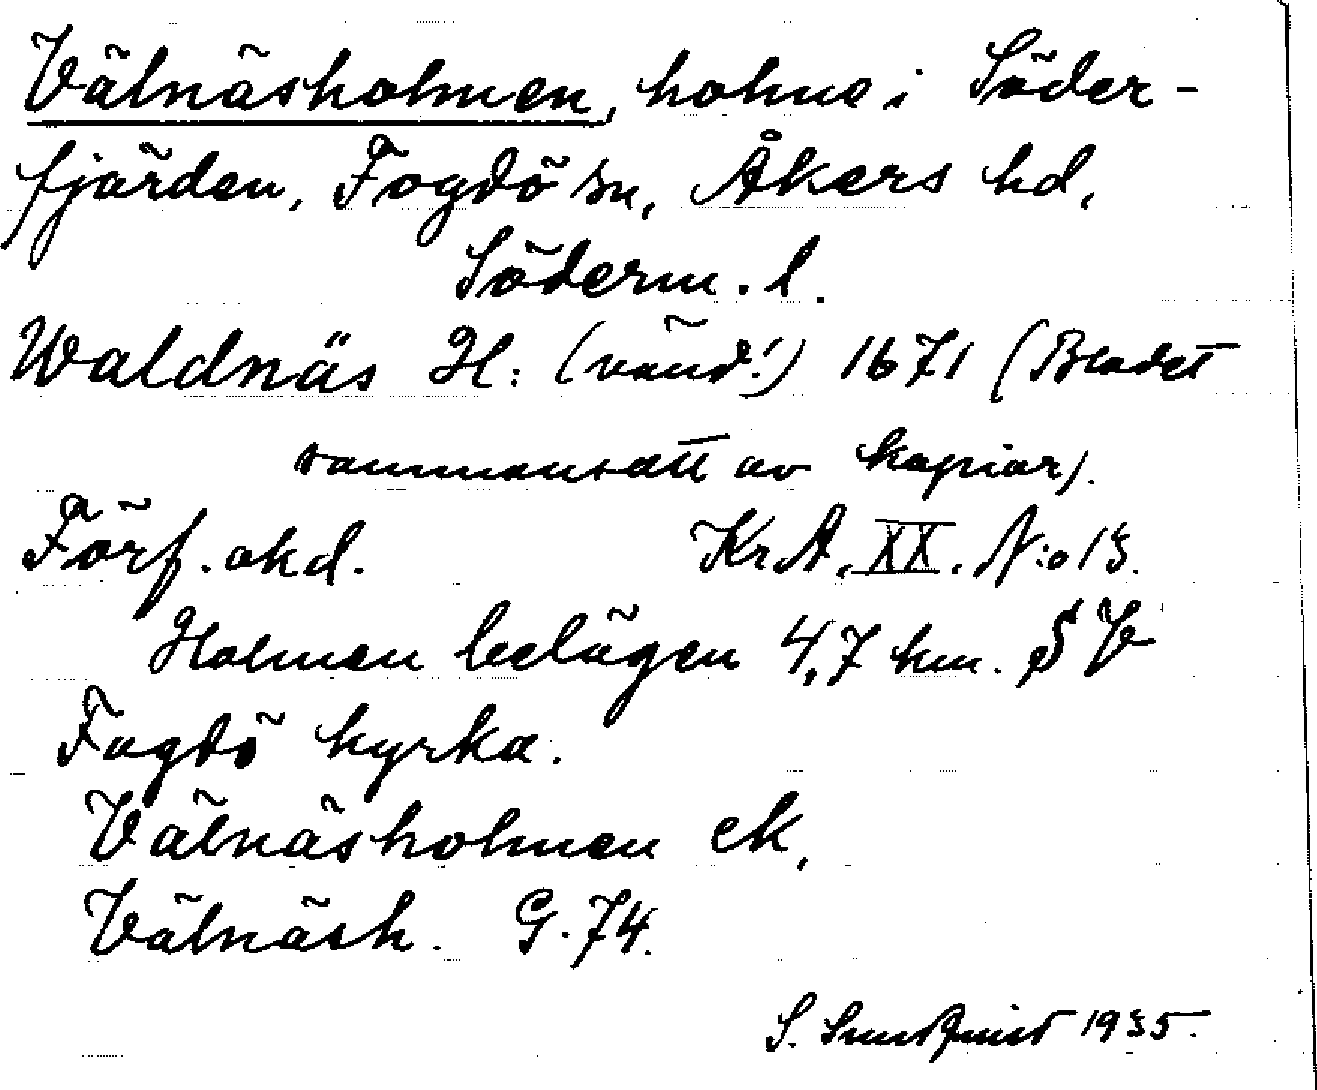 Välnäsholmen, holme i Söder-
fjärden, Fogdö sn, Åkers hd,
Söderm. l.
Waldnäs H: (vänd!) 1671 (Bladet
sammansatt av kopior).
Förf. okd. Kr.A. XX. N:o 13.
Holmen belägen 4,7 km. S V
Fogdö kyrka.
Välnäsholmen ek,
Välnäsh. G. 74.
S. Sundquist 1935.